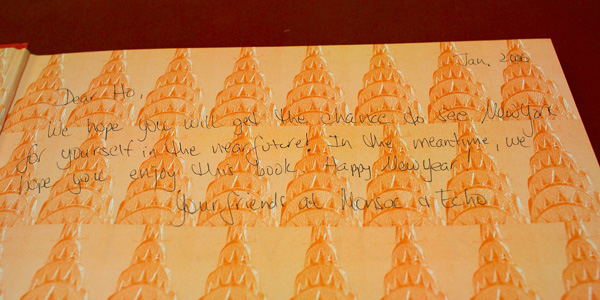 Jan. 2006
Dear Ho,
We hope you will get the chance to see New York
for yourself in the near future! In the meantime, we
hope you enjoy this book. Happy New Year!
Your friends at Monsac & Echo